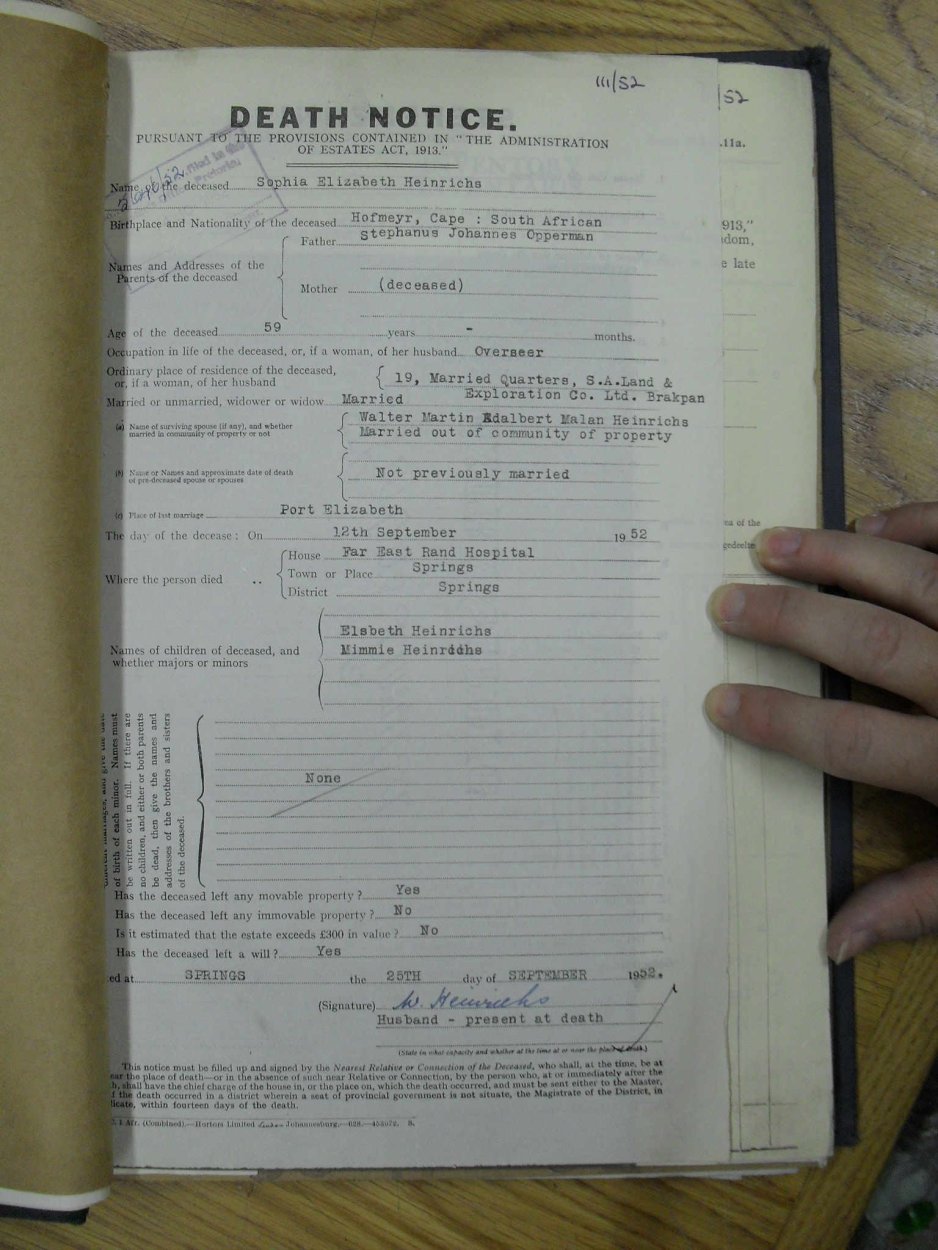 111/52
52
DEATH NOTICE.
PURSUANT TO THE PROVISIONS CONTAINED IN "THE ADMINISTRATION
OF ESTATES ACT, 1913."
11a.
Name of the deceased Sophia Elizabeth Heinrichs
Birthplace and Nationality of the deceased Hofmeyr, Cape : South African
913,"
Father Stephanus Johannes Opperman
dom,
Names and Addresses of the
Parents of the deceased
e late
Mother (deceased)
Age of the deceased 59 years - months.
Occupation in life of the deceased, or, if a woman, of her husband Overseer
Ordinary place of residence of the deceased,
or, if a woman, of her husband
19, Married Quarters, S.A.Land &
Exploration Co. Ltd. Brakpan
Married or unmarried, widower or widow Married
(a) Name of surviving spouse (if any), and whether
married in community of property or not
Walter Martin Adalbert Malan Heinrichs
Married out of community of property
(b) Name or Names and approximate date of death
of pre-deceased spouse or spouses
Not previously married
(c) Place of last marriage Port Elizabeth
ea of the
The day of the decease: On 12th September 1952
gedeelte
Where the person died ..
House Far East Rand Hospital
Town or Place Springs
District Springs
Names of children of deceased, and
whether majors or minors
Elsbeth Heinrichs
Mimmie Heinrichs
of birth of each minor. Names must
be written out in full. If there are
no children, and either or both parents
be dead, then give the names and
addresses of the brothers and sisters
of the deceased.
None
Has the deceased left any movable property? Yes
Has the deceased left any immovable property? No
Is it estimated that the estate exceeds £300 in value? No
Has the deceased left a will? Yes
ed at SPRINGS the 25TH day of SEPTEMBER 1952.
(Signature) W. Heinrichs
Husband - present at death
(State in what capacity and whether at the time at or near the place of death.)
This notice must be filled up and signed by the Nearest Relative or Connection of the Deceased, who shall, at the time, be at
ear the place of death—or in the absence of such near Relative or Connection, by the person who, at or immediately after the
h, shall have the chief charge of the house in, or the place on, which the death occurred, and must be sent either to the Master,
f the death occurred in a district wherein a seat of provincial government is not situate, the Magistrate of the District, in
licate, within fourteen days of the death.
Afr. (Combined).—Hortors Limited Johannesburg.—628.— S.